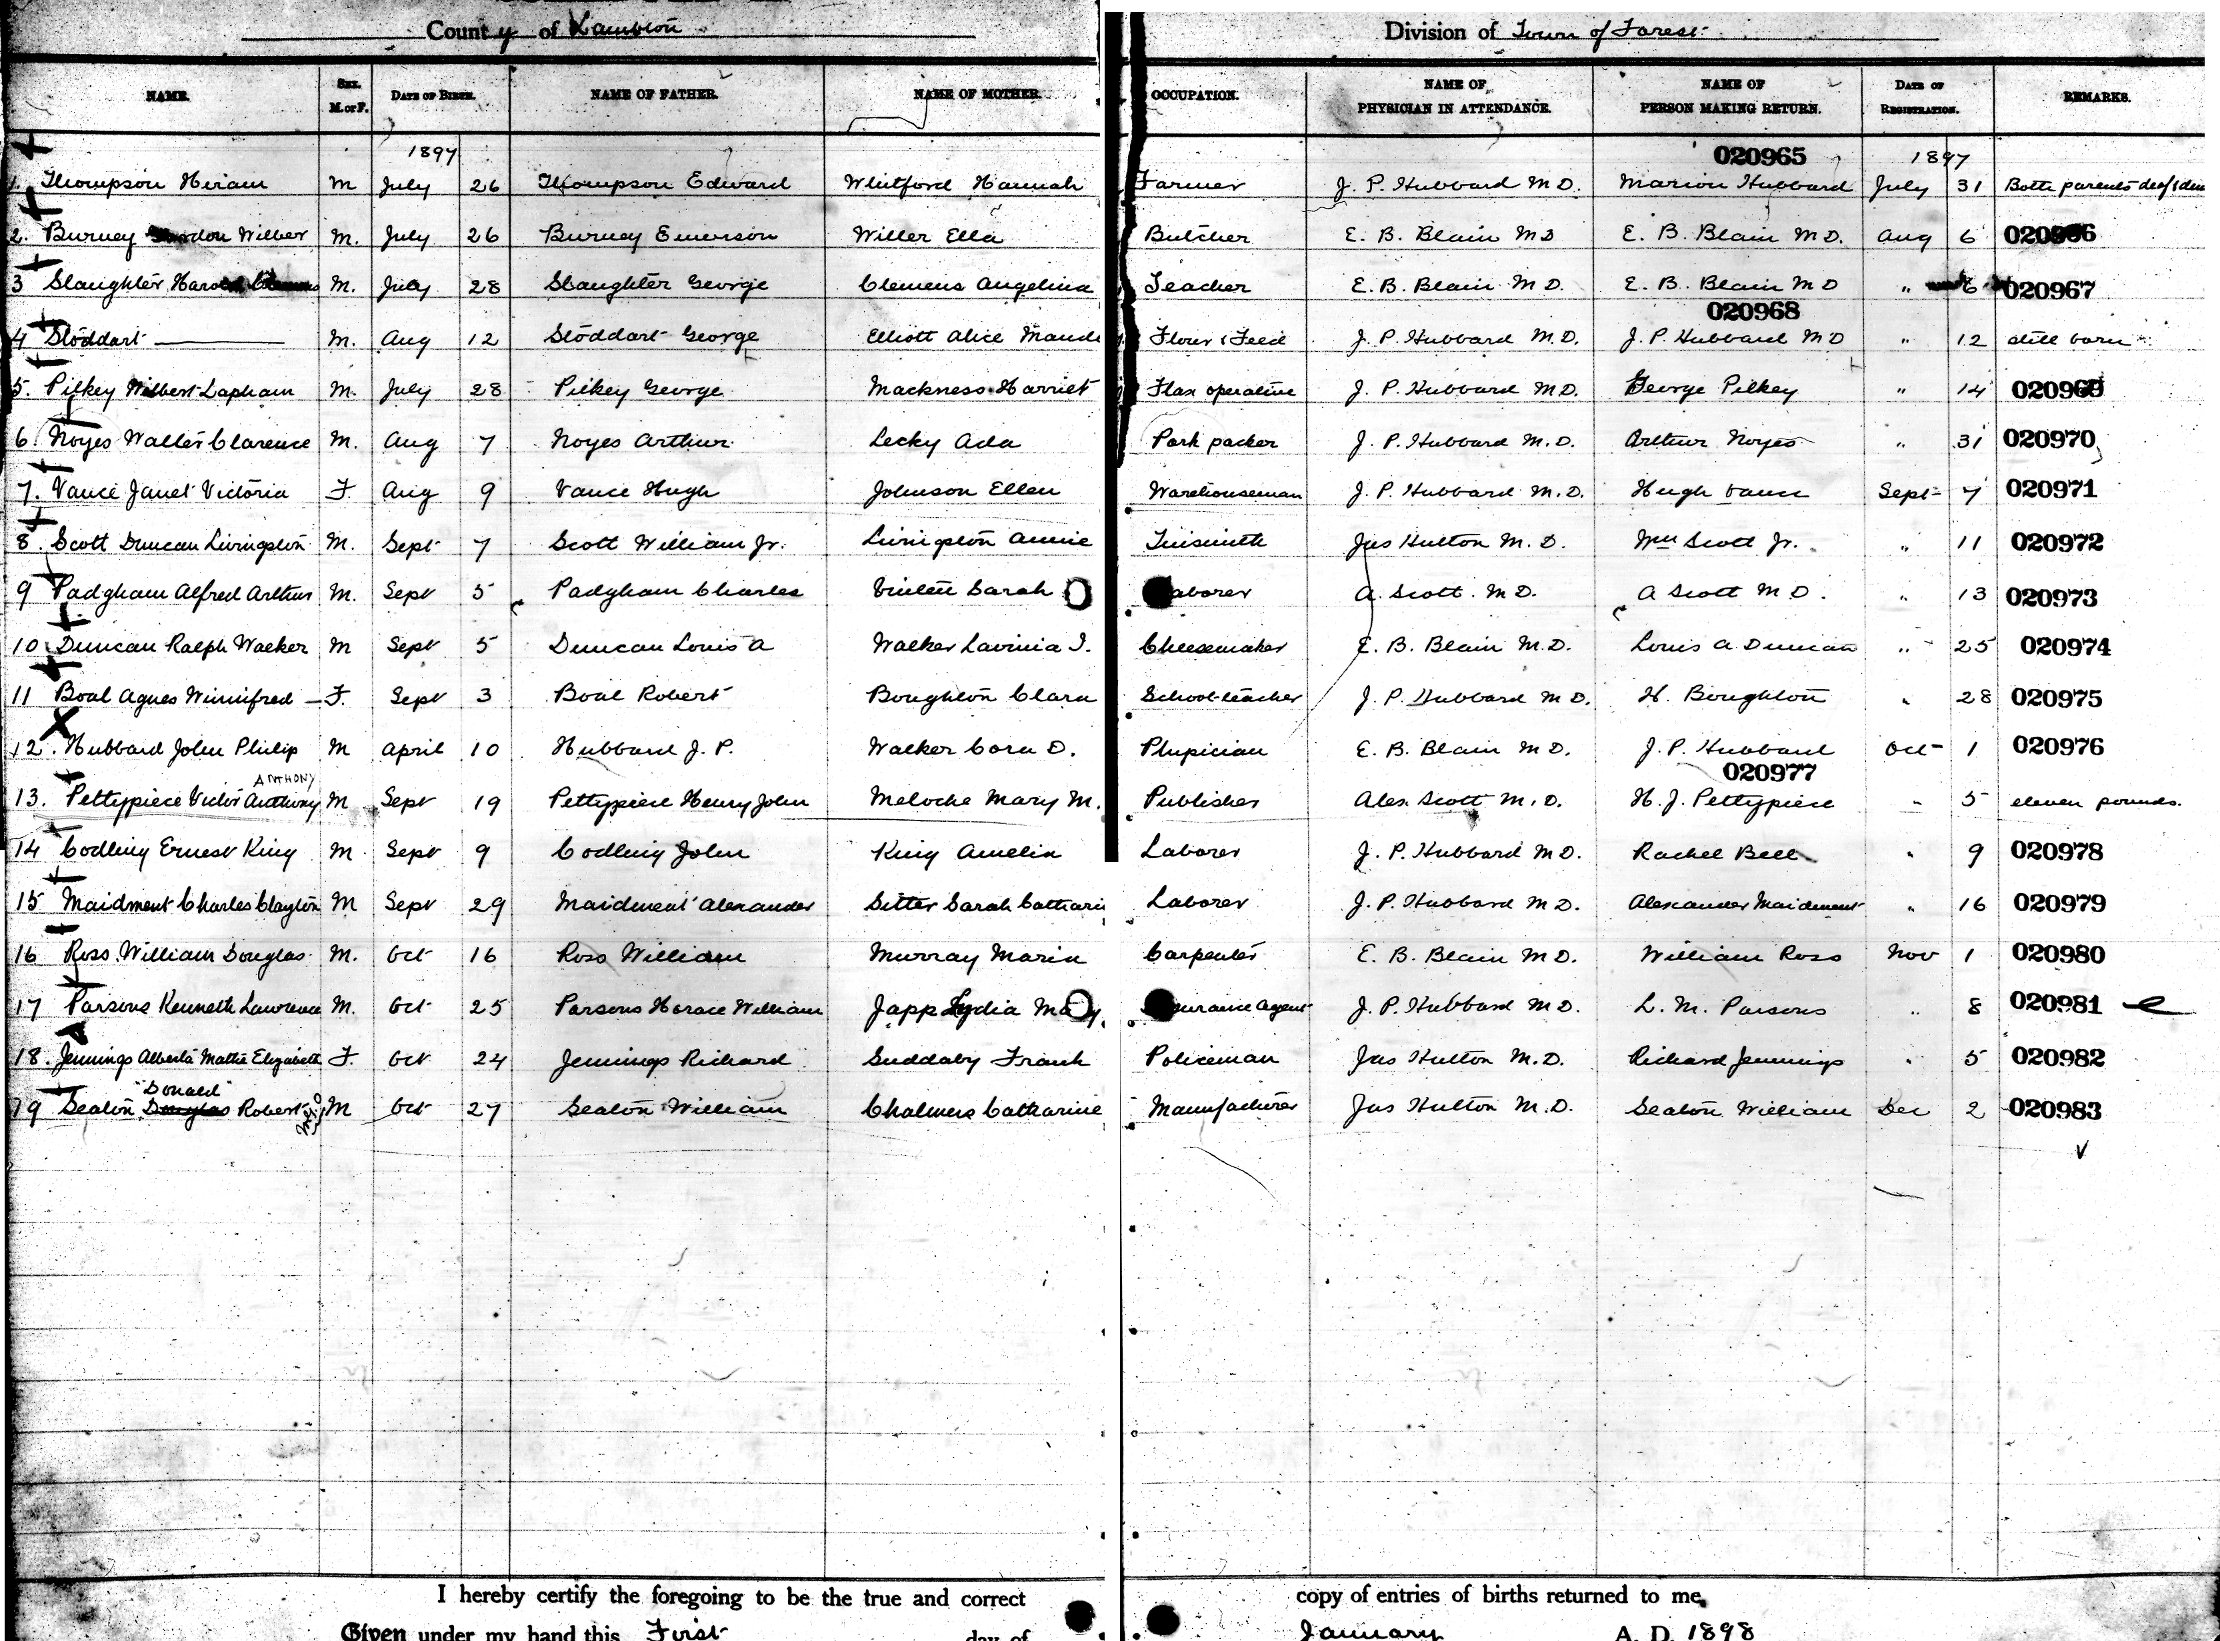 County of Lambton Division of Town of Forest
NAME. SEX. M. or F. DATE OF BIRTH. NAME OF FATHER. NAME OF MOTHER. OCCUPATION. NAME OF PHYSICIAN IN ATTENDANCE. NAME OF PERSON MAKING RETURN. DATE OF REGISTRATION. REMARKS.
1897 020965 1897
1. Thompson Hiram M July 26 Thompson Edward Whitford Hannah Farmer J. P. Hubbard M D. Marion Hubbard July 31 Both parents deaf &
2. Burney Wilber M. July 26 Burney Emerson Willer Ella Butcher E. B. Blain M D E. B. Blain M D. Aug 6 020966
3 Slaughter Harold M. July 28 Slaughter George Clemens Angelina Teacher E. B. Blain M D. E. B. Blain M D " 6 020967
020968
4 Stoddart — M. Aug 12 Stoddart George Elliott Alice Maude Flour & Feed J. P. Hubbard M. D. J. P. Hubbard M D " 12 still born
5. Pilkey Wilbert Lapham M. July 28 Pilkey George Mackness Harriet Flax operative J. P. Hubbard M D. George Pilkey " 14 020969
6. Noyes Walter Clarence M. Aug 7 Noyes Arthur Lecky Ada Pork packer J. P. Hubbard M. D. Arthur Noyes " 31 020970
7. Vance Janet Victoria F. Aug 9 Vance Hugh Johnson Ellen Warehouseman J. P. Hubbard M. D. Hugh Vance Sept 7 020971
8. Scott Duncan Livingston M. Sept 7 Scott William Jr. Livingston Annie Tinsmith Jas Hutton M. D. Wm Scott Jr. " 11 020972
9 Padgham Alfred Arthur M. Sept 5 Padgham Charles Sarah aborer A. Scott. M D. A Scott M D. " 13 020973
10. Duncan Ralph Walker M Sept 5 Duncan Louis A Walker Lavinia J. Cheesemaker E. B. Blain M. D. Louis A Duncan " 25 020974
11 Boal Agnes Winnifred — F. Sept 3 Boal Robert Boughton Clara School teacher J. P. Hubbard M D. H. Boughton " 28 020975
12. Hubbard John Philip M April 10 Hubbard J. P. Walker Cora D. Physician E. B. Blain M D. J. P. Hubbard Oct 1 020976
ANTHONY 020977
13. Pettypiece Victor Anthony M Sept 19 Pettypiece Henry John Meloche Mary M. Publisher Alex. Scott M. D. H. J. Pettypiece " 5 eleven pounds.
14 Codling Ernest King M Sept 9 Codling John King Amelia Laborer J. P. Hubbard M D. Rachel Bell " 9 020978
15 Maidment Charles Clayton M Sept 29 Maidment Alexander Sitter Sarah Laborer J. P. Hubbard M D. Alexander Maidment " 16 020979
16 Ross William Douglas M. Oct 16 Ross William Murray Maria Carpenter E. B. Blain M D. William Ross Nov 1 020980
17 Parsons Kenneth Lawrence M. Oct 25 Parsons Horace William Japp Lydia May urance Agent J. P. Hubbard M D. L. M. Parsons " 8 020981
18. Jennings Alberta Mattie Elizabeth F. Oct 24 Jennings Richard Suddaby Frank Policeman Jas Hutton M. D. Richard Jennings " 5 020982
"Donald"
19 Seaton Douglas Robert M Oct 27 Seaton William Chalmers Catharine Manufacturer Jas Hutton M. D. Seaton William Dec 2 020983
I hereby certify the foregoing to be the true and correct copy of entries of births returned to me.
Given under my hand this First day of January A. D. 1898